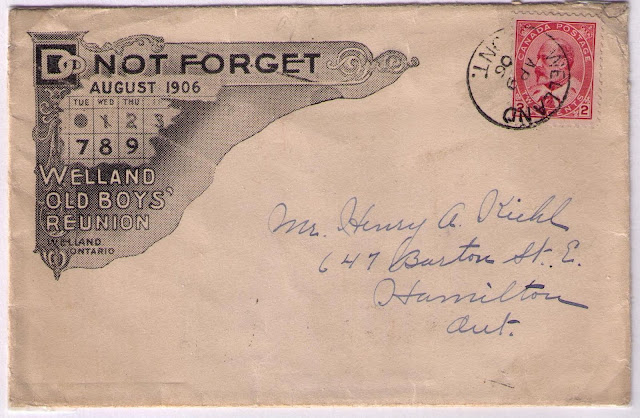 DO NOT FORGET
AUGUST 1906
TUE WED THU
1 2 3
7 8 9
WELLAND
OLD BOYS'
REUNION
WELLAND
ONTARIO
CANADA POSTAGE
2 CENTS 2
WELLAND
ONT.
06
Mr. Henry A. Kiehl
647 Barton St. E.
Hamilton
Ont.